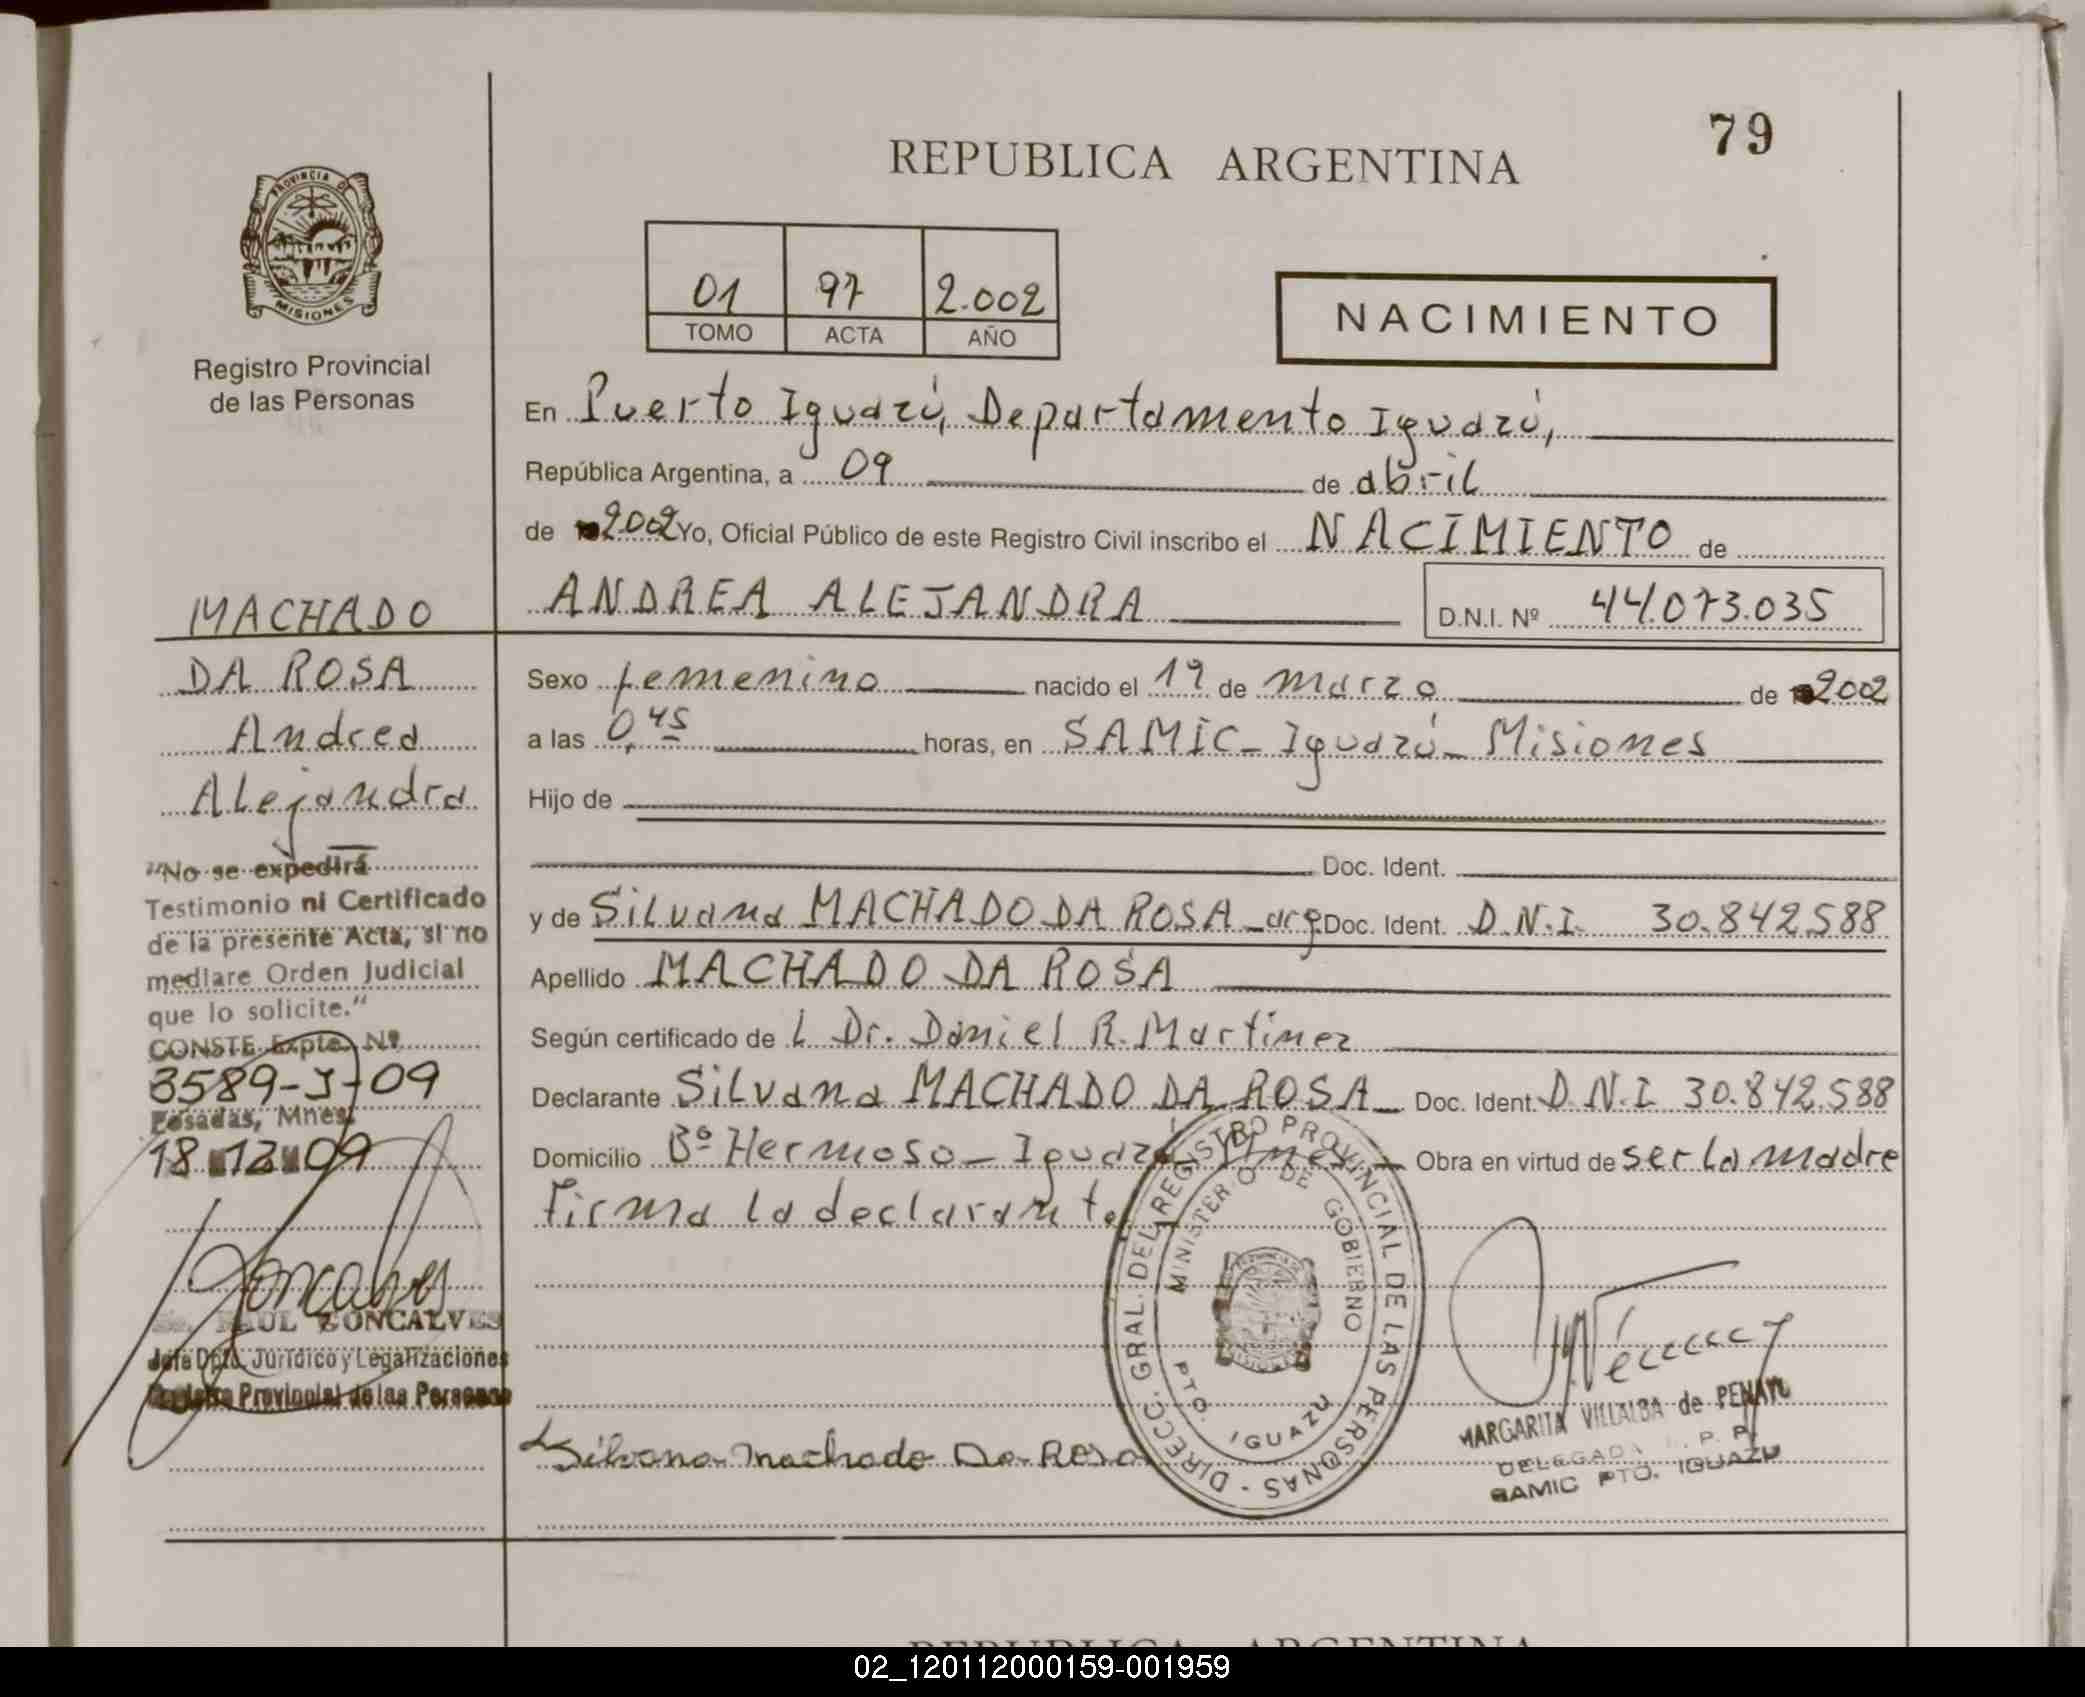 79
REPUBLICA ARGENTINA
PROVINCIA DE
MISIONES
Registro Provincial
de las Personas
01 97 2.002
TOMO ACTA AÑO
NACIMIENTO
En Puerto Iguazú, Departamento Iguazú,
República Argentina, a 09 de abril
de 2002 Yo, Oficial Público de este Registro Civil inscribo el NACIMIENTO de
ANDREA ALEJANDRA D.N.I. Nº 44.073.035
MACHADO
DA ROSA
Andrea
Alejandra
Sexo femenino nacido el 19 de marzo de 2002
a las 0,45 horas, en SAMIC - Iguazú - Misiones
Hijo de
Doc. Ident.
y de Silvana MACHADO DA ROSA - arg. Doc. Ident. D.N.I. 30.842.588
Apellido MACHADO DA ROSA
Según certificado de L Dr. Daniel R. Martinez
Declarante Silvana MACHADO DA ROSA - Doc. Ident. D.N.I. 30.842.588
Domicilio Bº Hermoso - Iguazú - Mnes - Obra en virtud de ser la madre
Firma la declarante
"No se expedirá
Testimonio ni Certificado
de la presente Acta, si no
mediare Orden Judicial
que lo solicite."
CONSTE Expte. Nº
3589-J-09
Posadas, Mnes.
18 12 09
Goncalves
RAUL GONCALVES
Jefe Dpto. Jurídico y Legalizaciones
Registro Provincial de las Personas
DIRECC. GRAL. DEL REGISTRO PROVINCIAL DE LAS PERSONAS -
MINISTERIO DE GOBIERNO
PTO. IGUAZU
Silvana Machado Da Rosa
MARGARITA VILLALBA de PENAYO
DELEGADA R. P. P.
SAMIC PTO. IGUAZU
REPUBLICA ARGENTINA
02_120112000159-001959